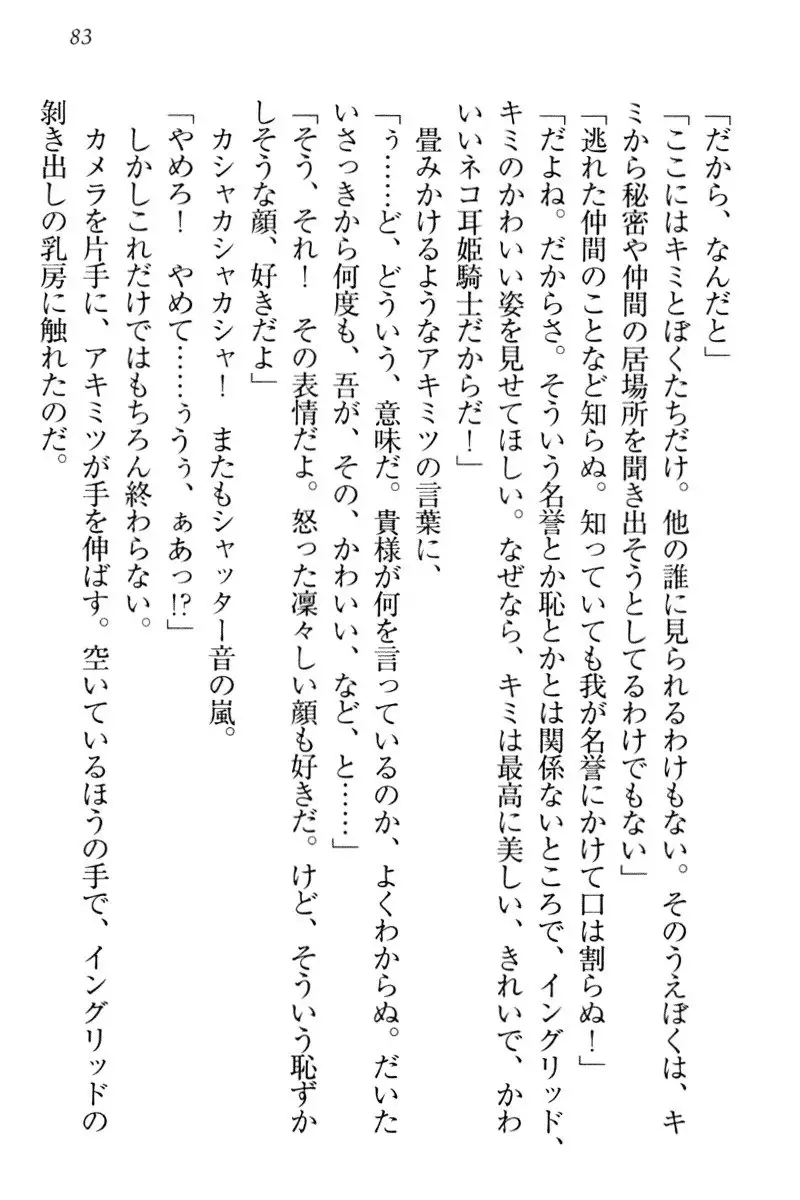 83
「だから、なんだと」
「ここにはキミとぼくたちだけ。他の誰に見られるわけもない。そのうえぼくは、キ
ミから秘密や仲間の居場所を聞き出そうとしてるわけでもない」
「逃れた仲間のことなど知らぬ。知っていても我が名誉にかけて口は割らぬ！」
「だよね。だからさ。そういう名誉とか恥とかとは関係ないところで、イングリッド、
キミのかわいい姿を見せてほしい。なぜなら、キミは最高に美しい、きれいで、かわ
いいネコ耳姫騎士だからだ！」
畳みかけるようなアキミツの言葉に、
「ぅ……ど、どういう、意味だ。貴様が何を言っているのか、よくわからぬ。だいた
いさっきから何度も、吾が、その、かわいい、など、と……」
「そう、それ！　その表情だよ。怒った凜々しい顔も好きだ。けど、そういう恥ずか
しそうな顔、好きだよ」
カシャカシャカシャ！　またもシャッター音の嵐。
「やめろ！　やめて……ぅうぅ、ぁあっ!?」
しかしこれだけではもちろん終わらない。
カメラを片手に、アキミツが手を伸ばす。空いているほうの手で、イングリッドの
剝き出しの乳房に触れたのだ。